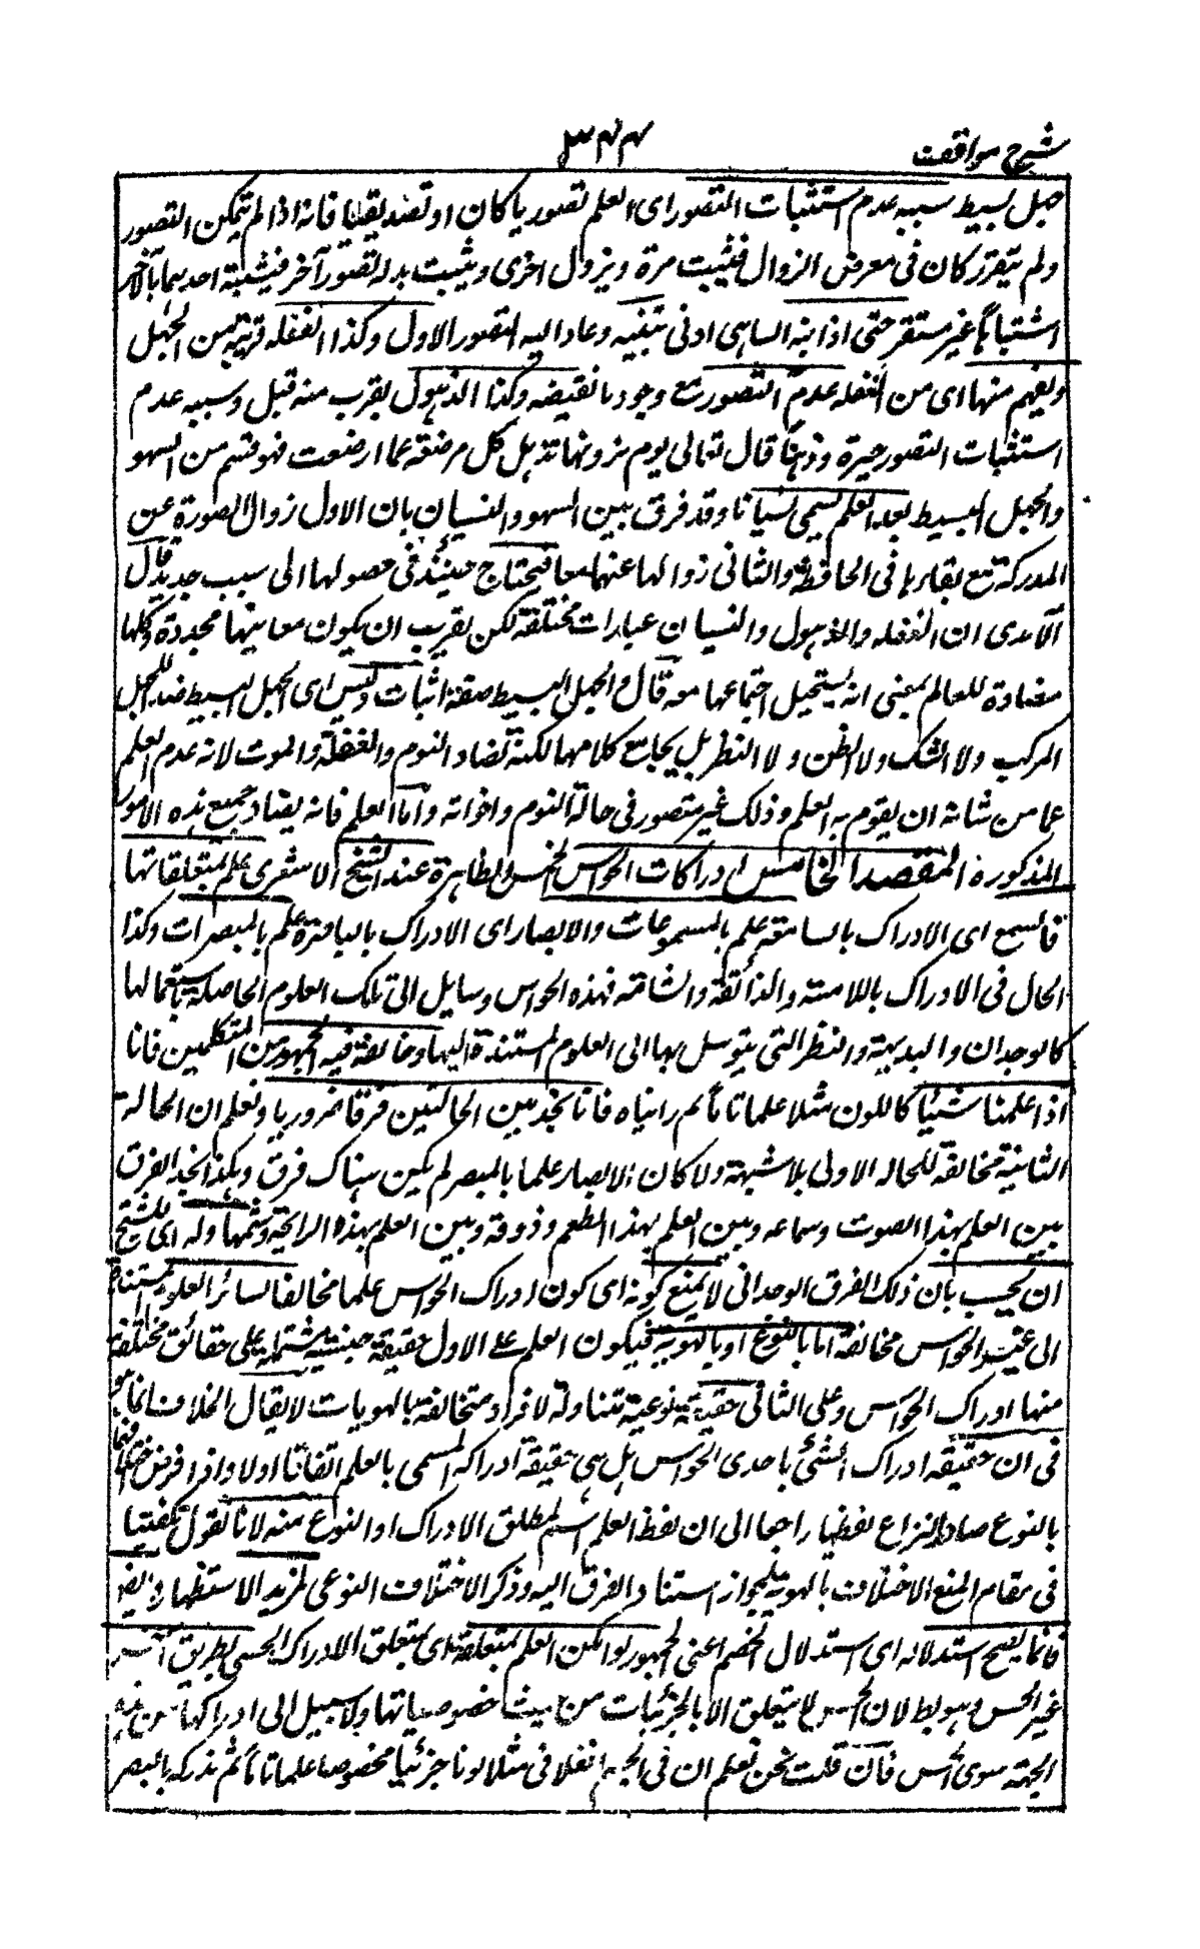 شرح مواقف
۳۴۴
جهل بسيط سببه عدم استثبات التصور اى العلم تصوريا كان او تصديقيا فانه اذا لم يتمكن التصور
ولم يتقرر كان فى معرض الزوال فيثبت مرة ويزول اخرى ويثبت بدله تصور آخر فيشتبه احدهما بالآخر
اشتباها غير مستقر حتى اذا نبه الساهى ادنى تنبيه وعاد اليه التصور الاول وكذا الغفلة قريبة من الجهل
ويفهم منها اى من الغفلة عدم التصور مع وجود ما نقيضه وكذا الذهول يقرب منه قيل وسببه عدم
استثبات التصور حيرة ودهشا قال تعالى يوم ترونها تذهل كل مرضعة عما ارضعت فهو قسم من السهو
والجهل البسيط بعد العلم يسمى نسيانا وقد فرق بين السهو والنسيان بان الاول زوال الصورة عن
المدركة مع بقاءها فى الحافظة والثانى زوالها عنهما معا فيحتاج حينئذ فى حصولها الى سبب جديد قال
الآمدى ان الغفلة والذهول والنسيان عبارات مختلفة لكن يقرب ان يكون معانيها متحدة وكلها
مضادة للعالم بمعنى انه يستحيل اجتماعها معه قال والجهل البسيط صفة اثبات وليس اى الجهل البسيط ضد اللجهل
المركب ولا الشك ولا الظن ولا النظر بل يجامع كلا منها لكنه يضاد النوم والغفلة والموت لانه عدم العلم
عما من شانه ان يقوم به العلم وذلك غير متصور فى حالة النوم واخواته واما العلم فانه يضاد جميع هذه الامور
المذكورة المقصد الخامس ادراكات الحواس الخمس الظاهرة عند الشيخ الاشعرى علم بمتعلقاتها
فالسمع اى الادراك بالسامعة علم بالمسموعات والابصار اى الادراك بالباصرة علم بالمبصرات وكذا
الحال فى الادراك باللامسة والذائقة والشامة فهذه الحواس وسايل الى تلك العلوم الحاصلة باستعمالها
كالوجدان والبديهة والنظر التى يتوسل بها الى العلوم المستندة اليها وخالفه فيه الجمهور من المتكلمين فانا
اذا علمنا شيئا كاللون مثلا علما تاما ثم رايناه فانا نجد بين الحالتين فرقا ضروريا ونعلم ان الحالة
الثانية مخالفة للحالة الاولى بلا شبهة ولو كان الابصار علما بالمبصر لم يكن هناك فرق وهكذا نجد الفرق
بين العلم بهذا الصوت وسماعه وبين العلم بهذا الطعم وذوقه وبين العلم بهذه الرايحة وشمها وله اى للشيخ
ان يجيب بان ذلك الفرق الوجدانى لا يمنع كونه اى كون ادراك الحواس علما مخالفا لسائر العلوم المستندة
الى غير الحواس مخالفة اما بالنوع او بالهوية فيكون العلم على الاول حقيقة جنسية مشتملة على حقائق مختلفة
منها ادراك الحواس وعلى الثانى حقيقة نوعية متناولة لافراد متخالفة بالهويات لا يقال الخلاف انما هو
فى ان حقيقة ادراك الشئ باحدى الحواس بل هى حقيقة ادراكه المسمى بالعلم اتفاقا اولا واذا فرض اختلافهما
بالنوع صار النزاع لفظيا راجعا الى ان لفظ العلم اسم لمطلق الادراك او النوع منه لانا نقول يكفينا
فى مقام المنع الاختلاف بالهوية لجواز استناد الفرق اليه وذكر الاختلاف النوعى لمزيد الاستظهار وايضا
فانما يصح استدلاله اى استدلال الخصم اعنى الجمهور لو امكن العلم بمتعلقه اى بمتعلق الادراك الحسى بطريق آخر
غير الحس وهو بط لان الحس لا يتعلق الا بالجزئيات من حيث خصوصياتها ولا سبيل الى ادراكها من هذه
الجهة سوى الحس فان قلت نحن نعلم ان فى الجسم الفلانى مثلا لونا جزئيا مخصوصا علما تاما ثم ندركه بالبصر